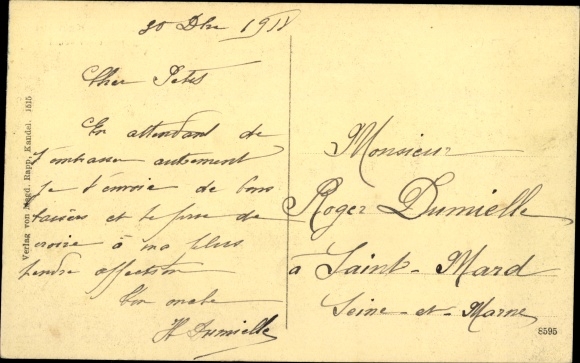 30 Dbre 1918
Cher Petit
En attendant de
t'embrasser autrement
je t'envoie de bons
baisers et te prie de
croire à ma plus
tendre affection
Ton oncle
H Dumielle
Monsieur
Roger Dumielle
à Saint-Mard
Seine-et-Marne
Verlag von Magd. Rapp, Kandel. 1515
8595